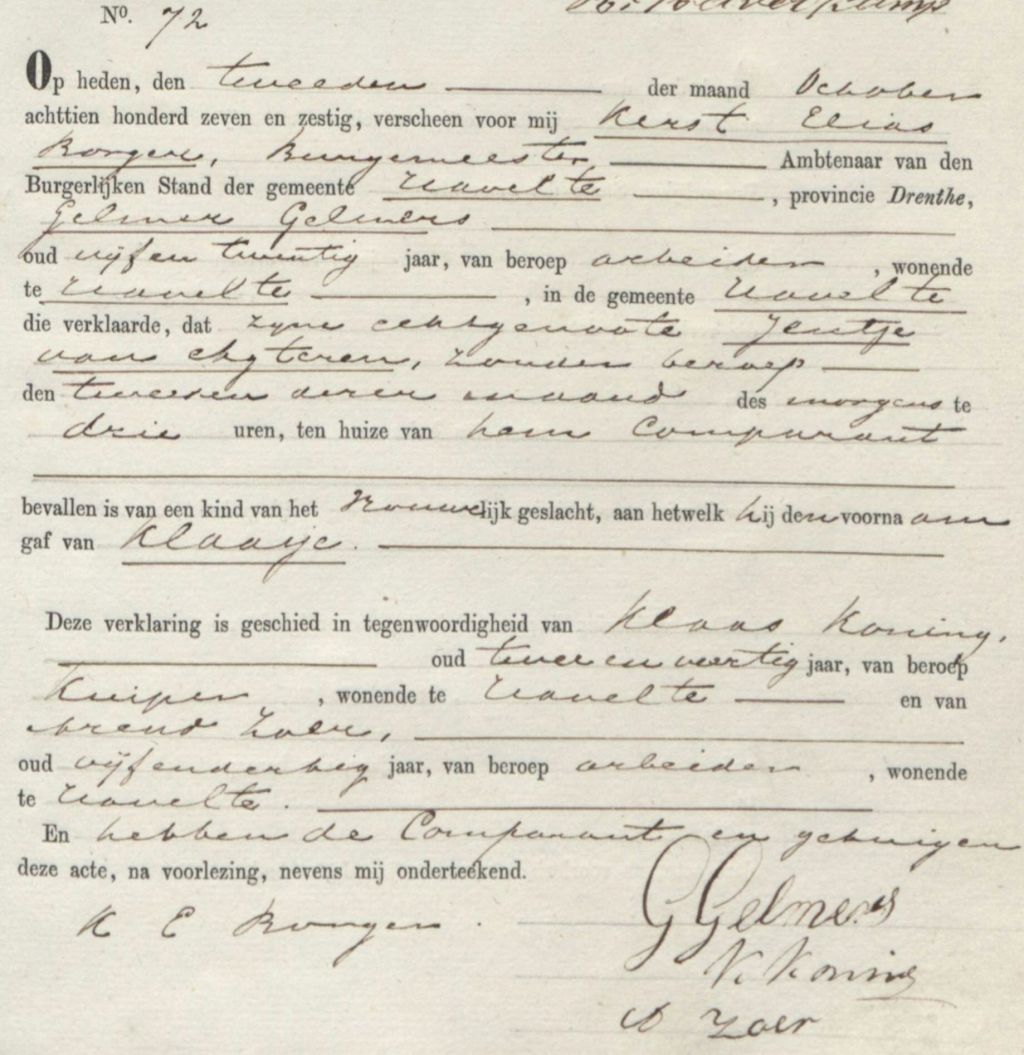 N°. 72
Op heden, den tweeden der maand October
achttien honderd zeven en zestig, verscheen voor mij Kerst Elias
Borger, Burgemeester, Ambtenaar van den
Burgerlijken Stand der gemeente Havelte, provincie Drenthe,
Gelmer Gelmers
oud vijfentwintig jaar, van beroep arbeider, wonende
te Havelte, in de gemeente Havelte
die verklaarde, dat zyne echtgenoote Jentje
van Egteren, zonder beroep
den tweeden dezer maand des morgens te
drie uren, ten huize van hem Comparant
bevallen is van een kind van het Vrouwelijk geslacht, aan hetwelk hij den voornaam
gaf van Klaasje.
Deze verklaring is geschied in tegenwoordigheid van Klaas Koning,
oud twee en veertig jaar, van beroep
Kuiper, wonende te Havelte en van
Arend Zoer,
oud vijfendertig jaar, van beroep arbeider, wonende
te Havelte.
En hebben de Comparant en getuigen
deze acte, na voorlezing, nevens mij onderteekend.
K E Borger.
G Gelmers
K Koning
A Zoer